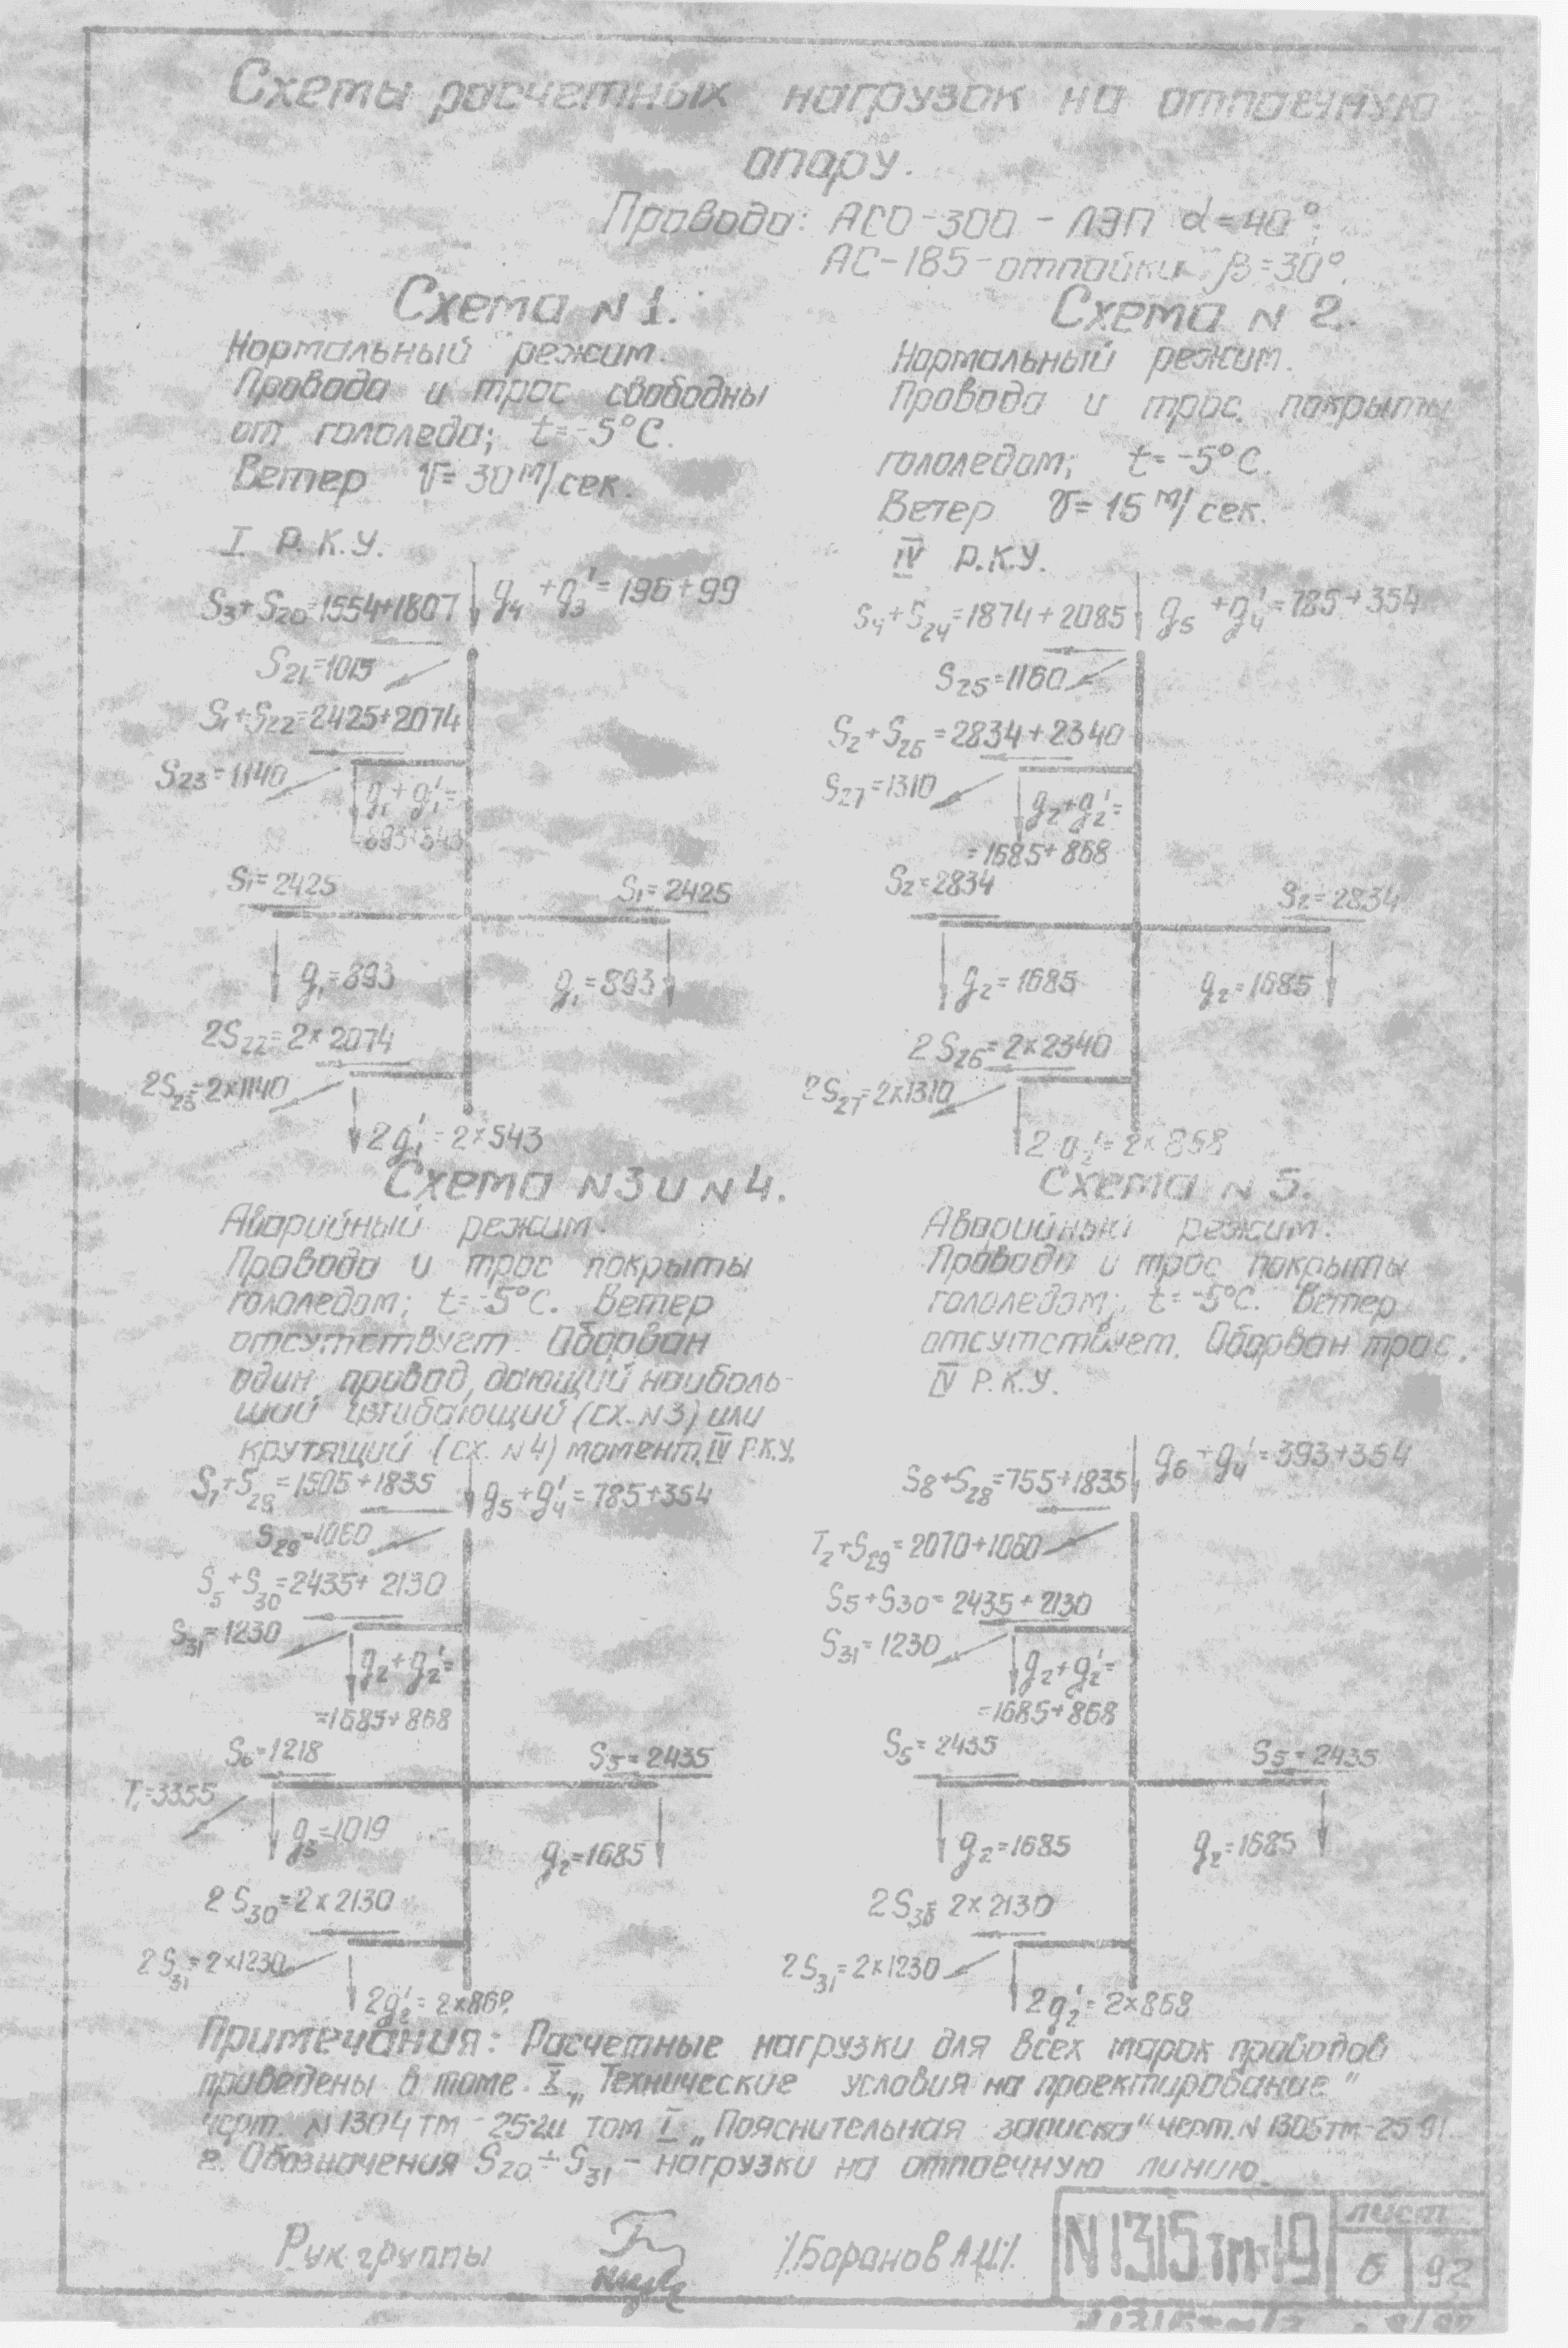 Схемы расчетных нагрузок на отпаечную
опору.
Провода: АСО-300 - ЛЭП α=40°;
АС-185-отпайки β=30°.
Схема N 1.
Нормальный режим.
Провода и трос свободны
от гололеда; t=-5°С.
Ветер V=30 м/сек.
I Р.К.У.
S3+S20=1554+1807
g4+g3'=196+99
S21=1015
S1+S22=2425+2074
S23=1140
g1+g1'=
S1=2425
S1=2425
g1=893
g1=893
2S22=2×2074
2S23=2×1140
2g1'=2×543
Схема N 2.
Нормальный режим.
Провода и трос покрыты
гололедом; t=-5°С.
Ветер V=15 м/сек.
IV Р.К.У.
S4+S24=1874+2085
g5+g4'=785+354
S25=1160
S2+S26=2834+2340
S27=1310
g2+g2'=
=1685+868
S2=2834
S2=2834
g2=1685
g2=1685
2S26=2×2340
2S27=2×1310
2g2'=2×868
Схема N3 и N4.
Аварийный режим.
Провода и трос покрыты
гололедом; t=-5°С. Ветер
отсутствует. Оборван
один, провод, дающий наиболь-
ший изгибающий (сх. N3) или
крутящий (сх. N4) момент. IV Р.К.У.
S7+S28=1505+1835
g5+g4'=785+354
S29=1060
S5+S30=2435+2130
S31=1230
g2+g2'=
=1685+868
S6=1218
S5=2435
T1=3355
g3=1019
g2=1685
2S30=2×2130
2S31=2×1230
2g2'=2×868
Схема N 5.
Аварийный режим.
Провода и трос покрыты
гололедом; t=-5°С. Ветер
отсутствует. Оборван трос.
IV Р.К.У.
S8+S28=755+1835
g6+g4'=393+354
T2+S29=2070+1060
S5+S30=2435+2130
S31=1230
g2+g2'=
=1685+868
S5=2435
S5=2435
g2=1685
g2=1685
2S30=2×2130
2S31=2×1230
2g2'=2×868
Примечания: Расчетные нагрузки для всех марок проводов
приведены в томе X „Технические условия на проектирование"
черт. N1304тм-25-2 и том I „Пояснительная записка" черт. N 1305тм-25-91
2. Обозначения S20÷S31 - нагрузки на отпаечную линию.
Рук. группы /Баранов А.И./
N1315тм-19
лист
6 92